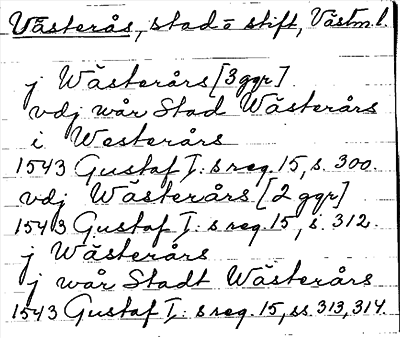 Västerås, stad o stift, Västm.l.
j Wästerårs [3 ggr]
vdj wår Stad Wästerårs
i Westerårs
1543 Gustaf I:s reg. 15, s. 300.
vdj Wästerårs [2 ggr]
1543 Gustaf I:s reg. 15, s. 312.
j Wästerårs
j wår Stadt Wästerårs
1543 Gustaf I:s reg. 15, ss. 313, 314.